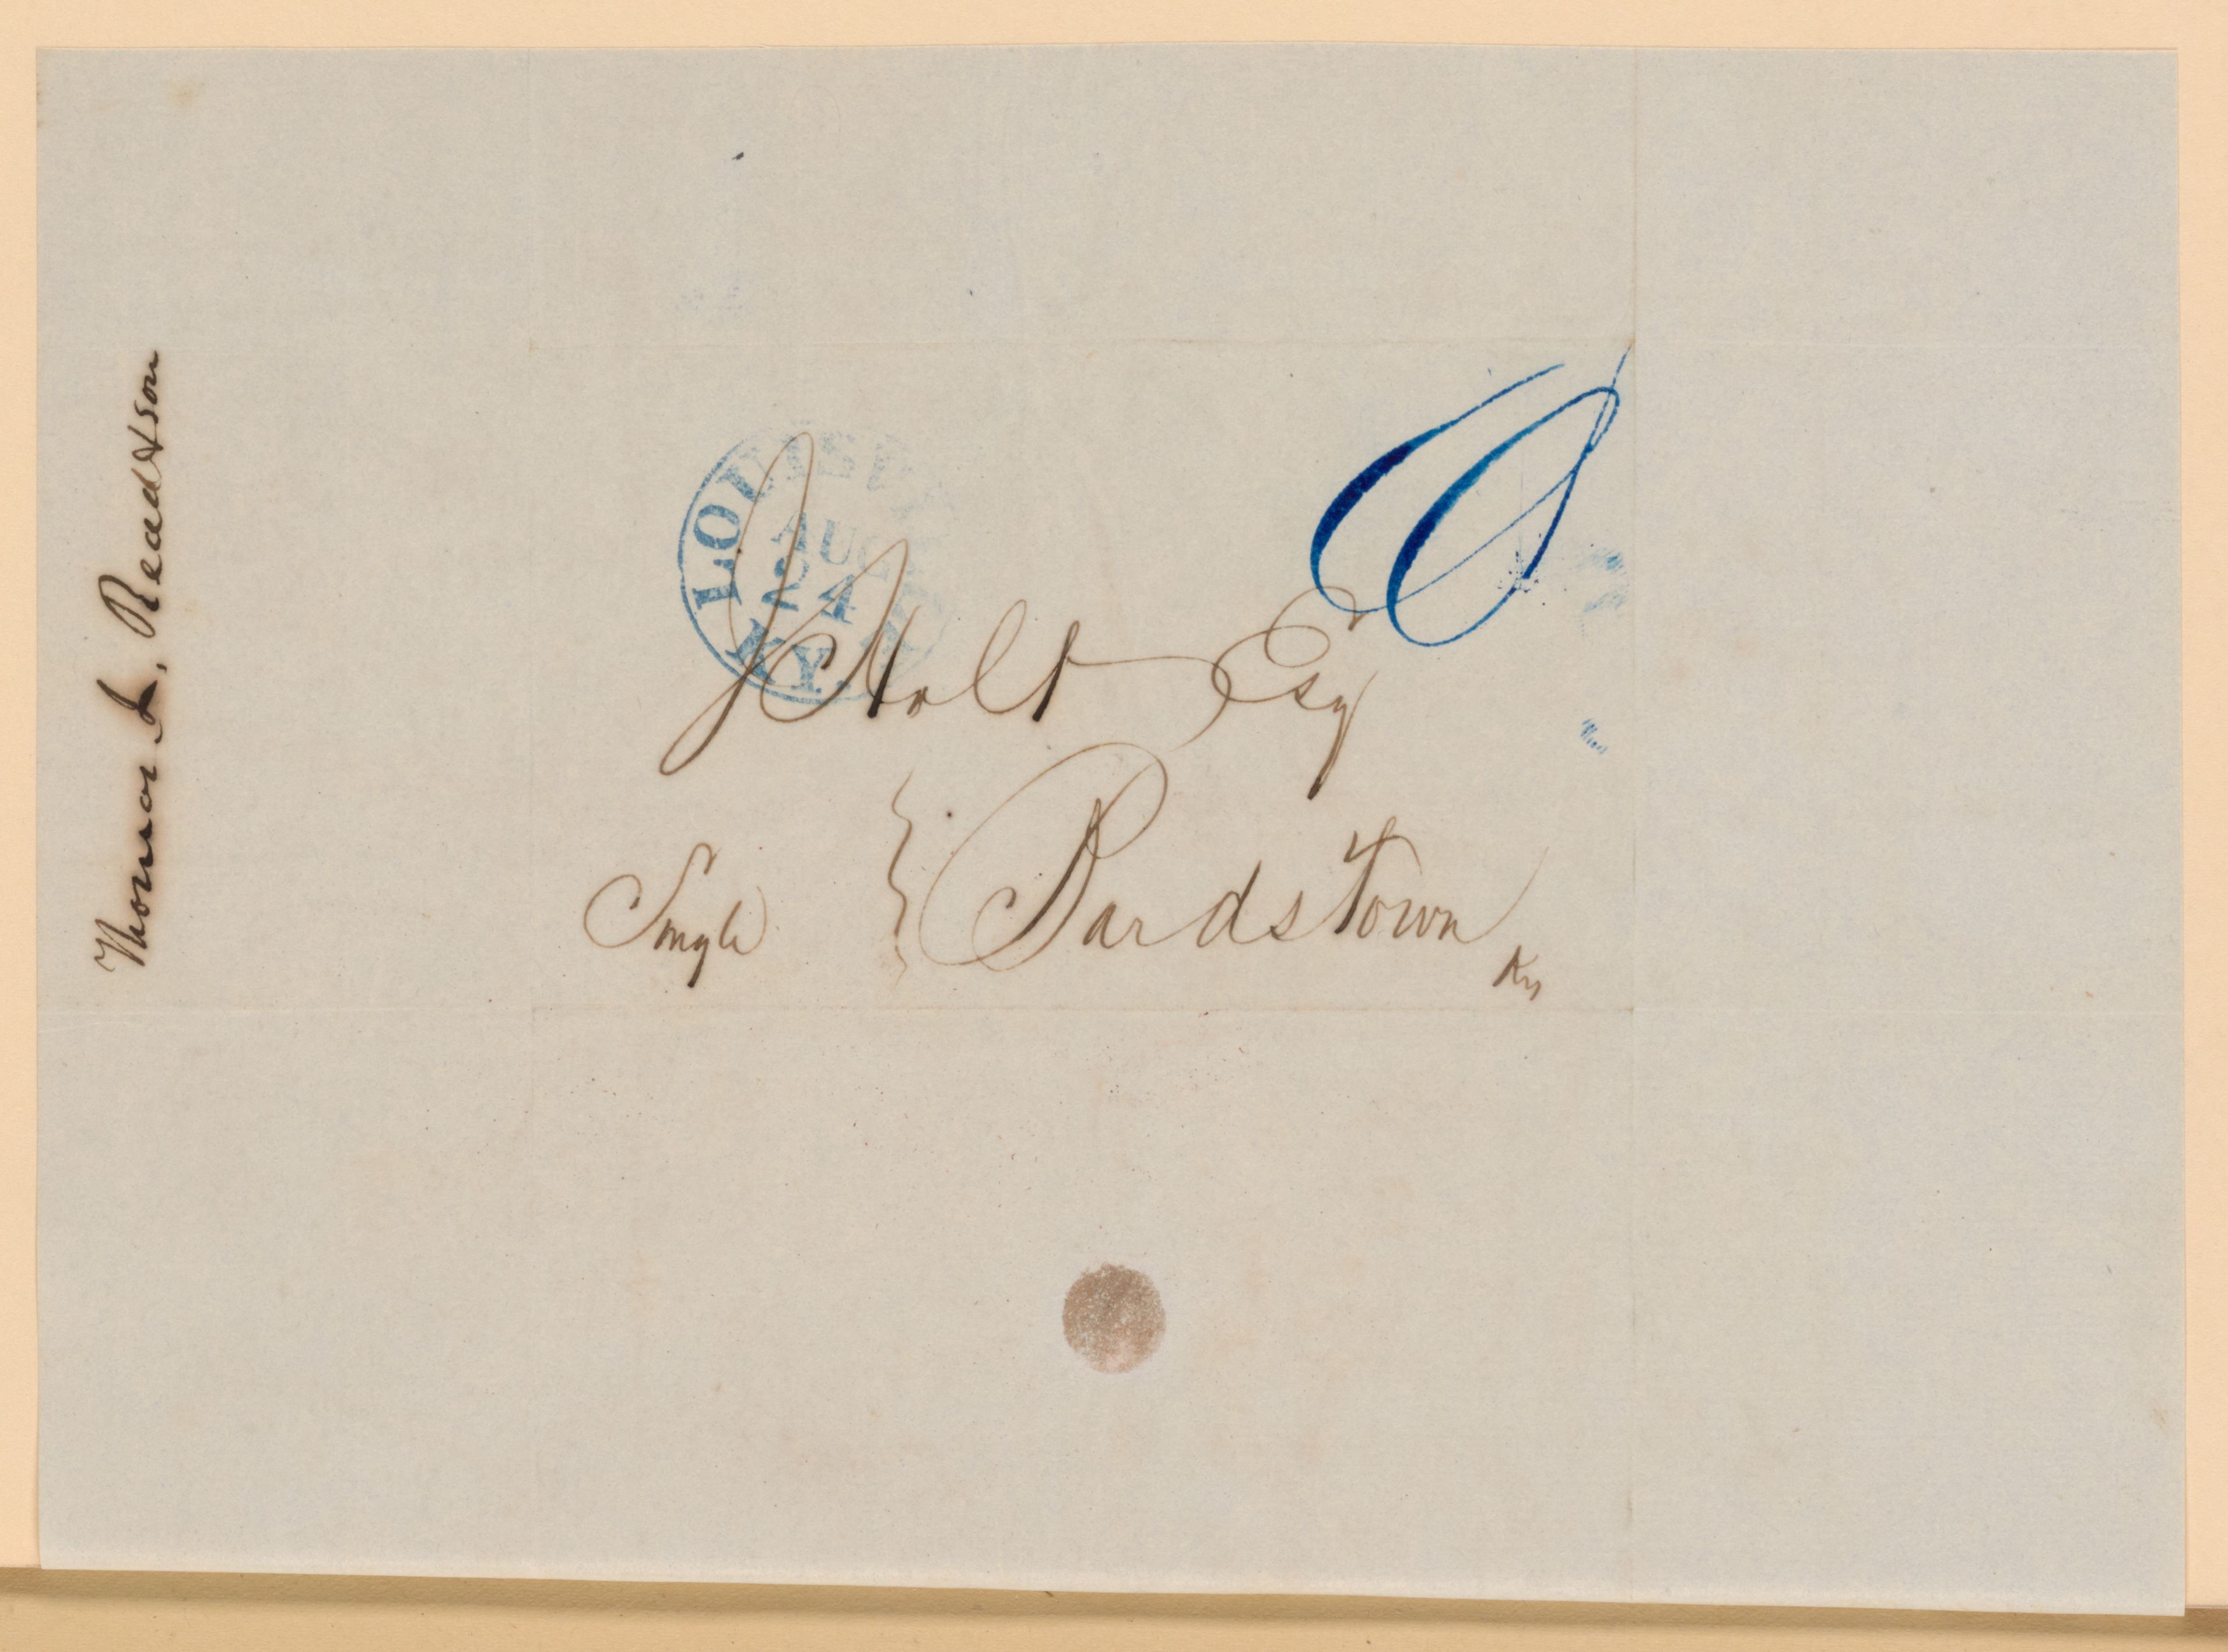 Thomas J. Read & Son
LOUISVI
AUG
24
KY.
J Holt Esq
Single
Bardstown
Ky